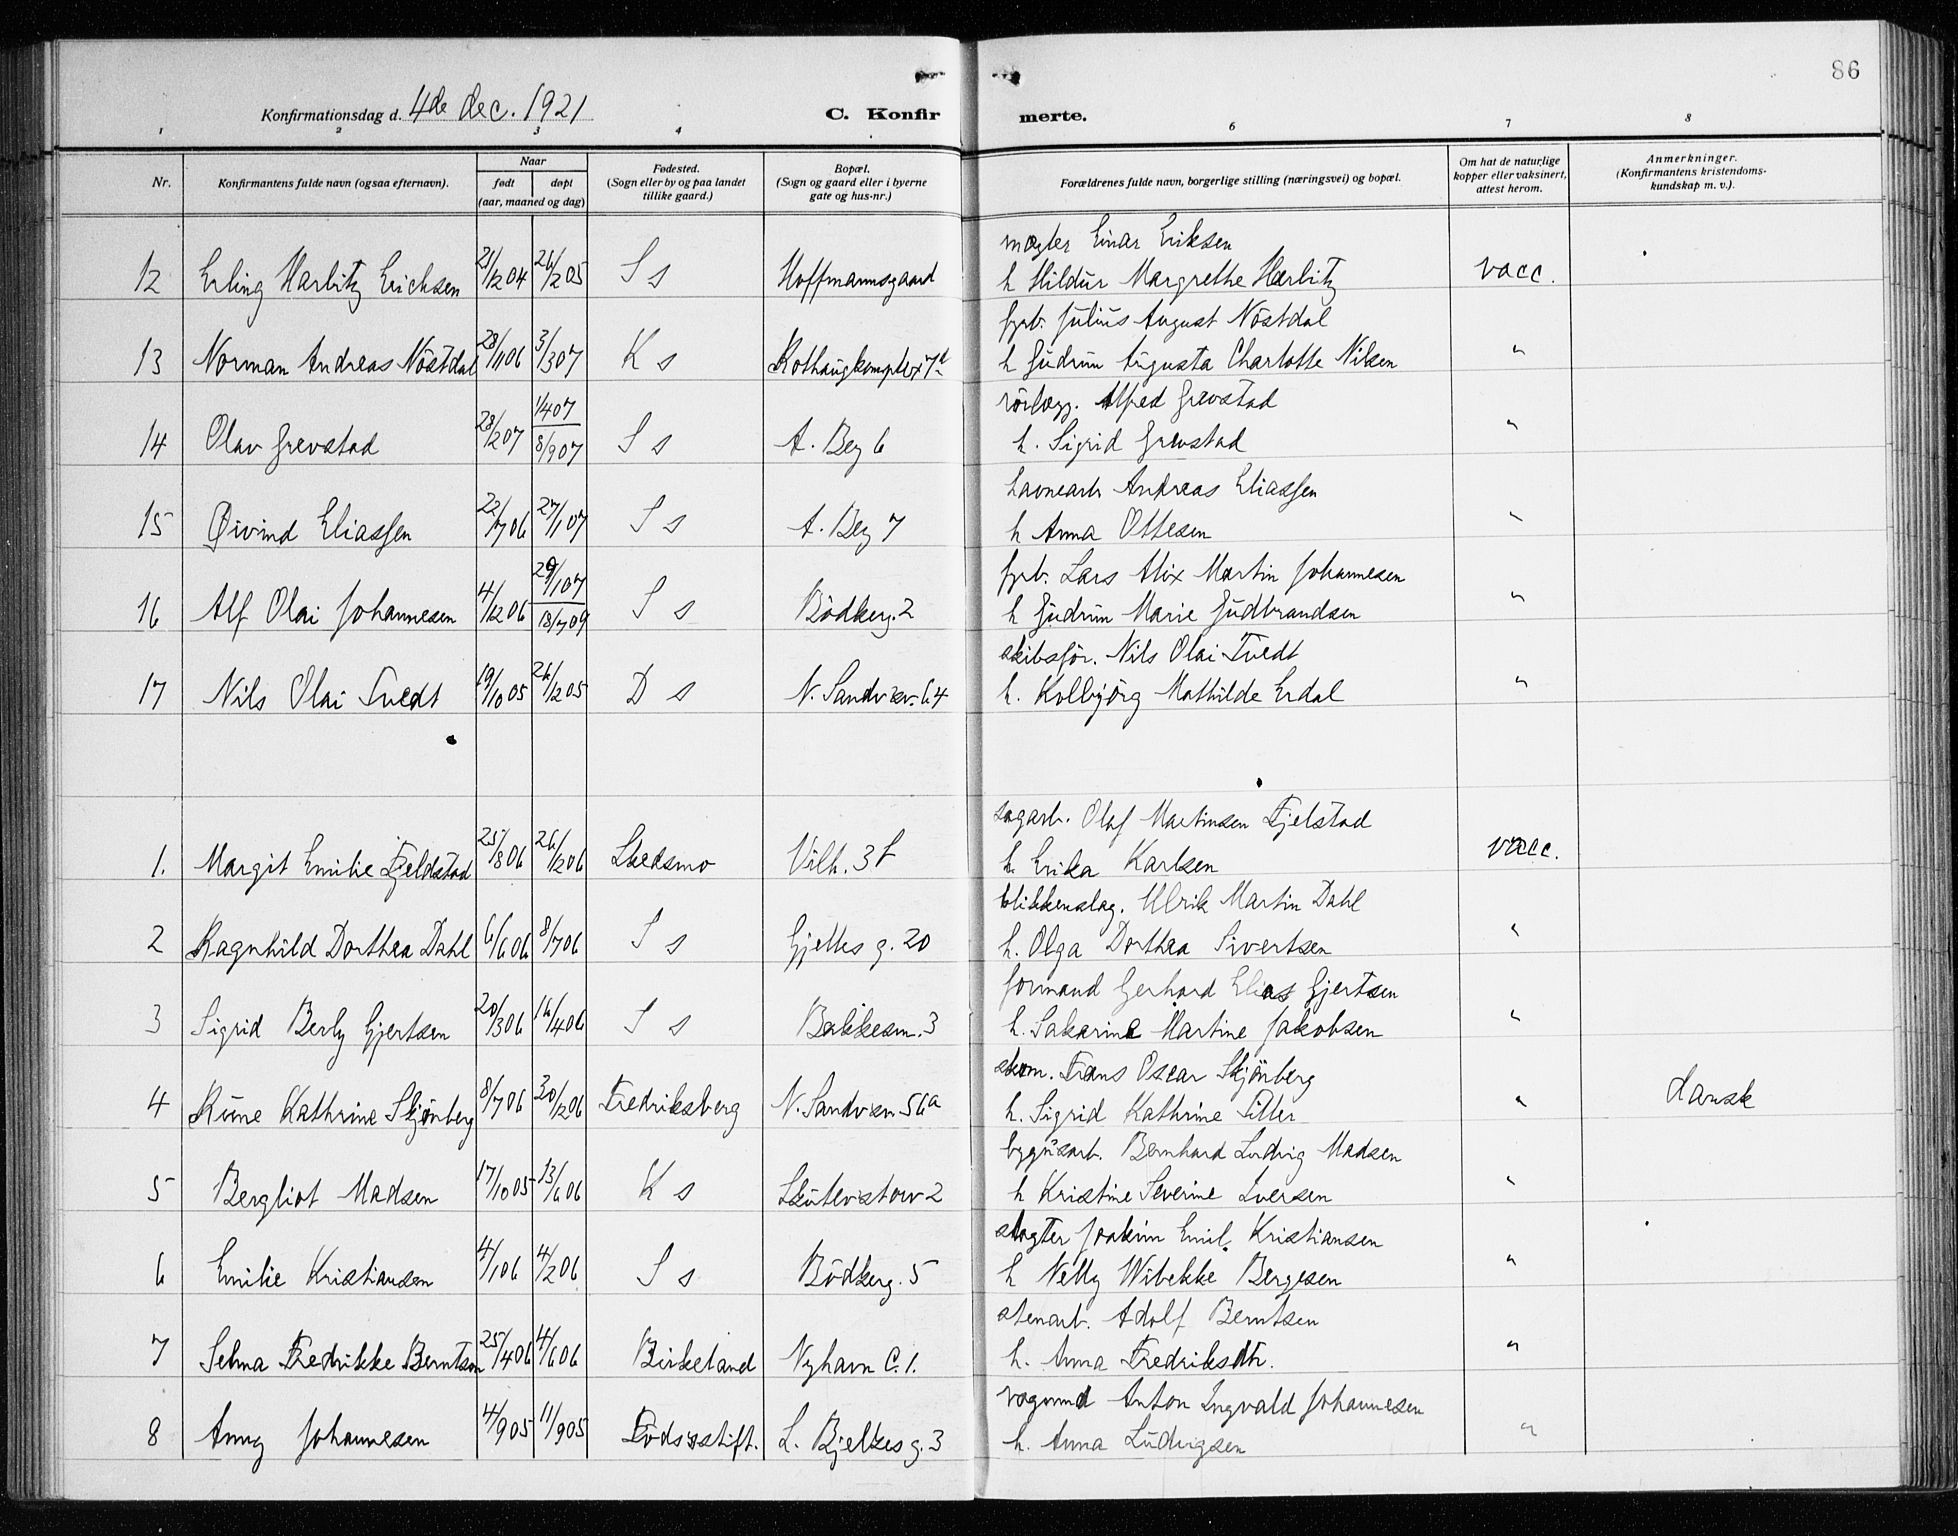 86
Konfirmationsdag d. 4de dec. 1921 C. Konfirmerte.
1 2 3 4 6 7 8
Nr. Konfirmantens fulde navn (ogsaa efternavn). Naar født døpt (aar, maaned og dag) Fødested. (Sogn eller by og paa landet tillike gaard.) Bopæl. (Sogn og gaard eller i byerne gate og hus-nr.) Forældrenes fulde navn, borgerlige stilling (næringsvei) og bopæl. Om hat de naturlige kopper eller vaksinert, attest herom. Anmerkninger. (Konfirmantens kristendomskundskap m. v.).
mægler Einar Eriksen
12 Erling Harbitz Erichsen 21/12 04 26/2 05 S s Hoffmannsgaard h Hildur Margrethe Harbitz vacc.
fyrb. Julius August Nöstdal
13 Norman Andreas Nöstdal 28/11 06 3/3 07 K s Rothaugkomplex 7d h Gudrun Augusta Charlotte Nilsen "
rörlægg. Alfred Grevstad
14 Olav Grevstad 28/2 07 1/4 07 8/9 07 S s A. Bey 6 h. Sigrid Grevstad "
havnearb Andreas Eliassen
15 Øivind Eliassen 22/7 06 27/1 07 S s A. Bey 7 h Anna Ottesen "
fyrb. Lars Alix Martin Johannesen
16 Alf Olai Johannesen 4/12 06 29/1 07 18/7 09 S s Bödkerg. 2 h Gudrun Marie Gudbrandsen "
skibsför. Nils Olai Tvedt
17 Nils Olai Tvedt 19/10 05 26/12 05 D s N. Sandvikv. 64 h. Kolbjörg Mathilde Erdal "
sagarb. Olaf Martinsen Fjelstad
1. Margit Emilie Fjeldstad 25/8 06 26/12 06 Skedsmo Vilh. 3 f h. Erika Karlsen vacc.
blikkenslag. Ulrik Martin Dahl
2 Ragnhild Dorthea Dahl 6/6 06 8/7 06 S s Gjelkes g. 20 h. Olga Dorthea Sivertsen "
formand Gerhard Elias Gjertsen
3 Sigrid Berly Gjertsen 20/3 06 16/4 06 S s Bakkesm. 3 h. Sakarine Martine Jakobsen "
skom. Frans Oscar Skjönberg
4 Rune Kathrine Skjönberg 8/7 06 30/12 06 Fredriksberg N. Sandvikv. 56a h. Sigrid Kathrine Sitter " dansk
bygnsarb. Bernhard Ludvig Madsen
5 Bergliot Madsen 17/10 05 13/6 06 K s Skutevstorv 2 h Kristine Severine Iversen "
slagter Joakim Emil Kristiansen
6 Emilie Kristiansen 4/1 06 4/2 06 S s Bödkerg. 5 h Nelly Wibekke Bergesen "
stenarb. Adolf Berntsen
7 Selma Fredrikke Berntsen 25/4 06 4/6 06 Birkeland Nyhavn C. 1. h. Anna Fredriksdtr. "
vognmd Anton Ingvald Johannesen
8 Anny Johannesen 4/9 05 11/9 05 Födsstift. L. Bjelkes g. 3 h. Anna Ludvigsen "